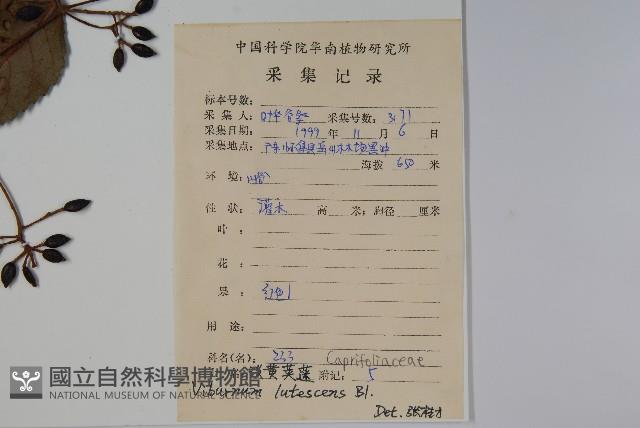 中国科学院华南植物研究所
采集记录
标本号数:
采集人: 叶华谷 采集号数: 3171
采集日期: 1999 年 11 月 6 日
采集地点:
海拨 650 米
环境:
性状: 灌木 高 米; 胸径 厘米
叶:
花:
果: 红色
用途:
科名(名): 233 Caprifoliaceae
黄荚蒾 附记: 5
Viburnum lutescens Bl.
Det. 张桂才
國立自然科學博物館
NATIONAL MUSEUM OF NATURAL SCIENCE